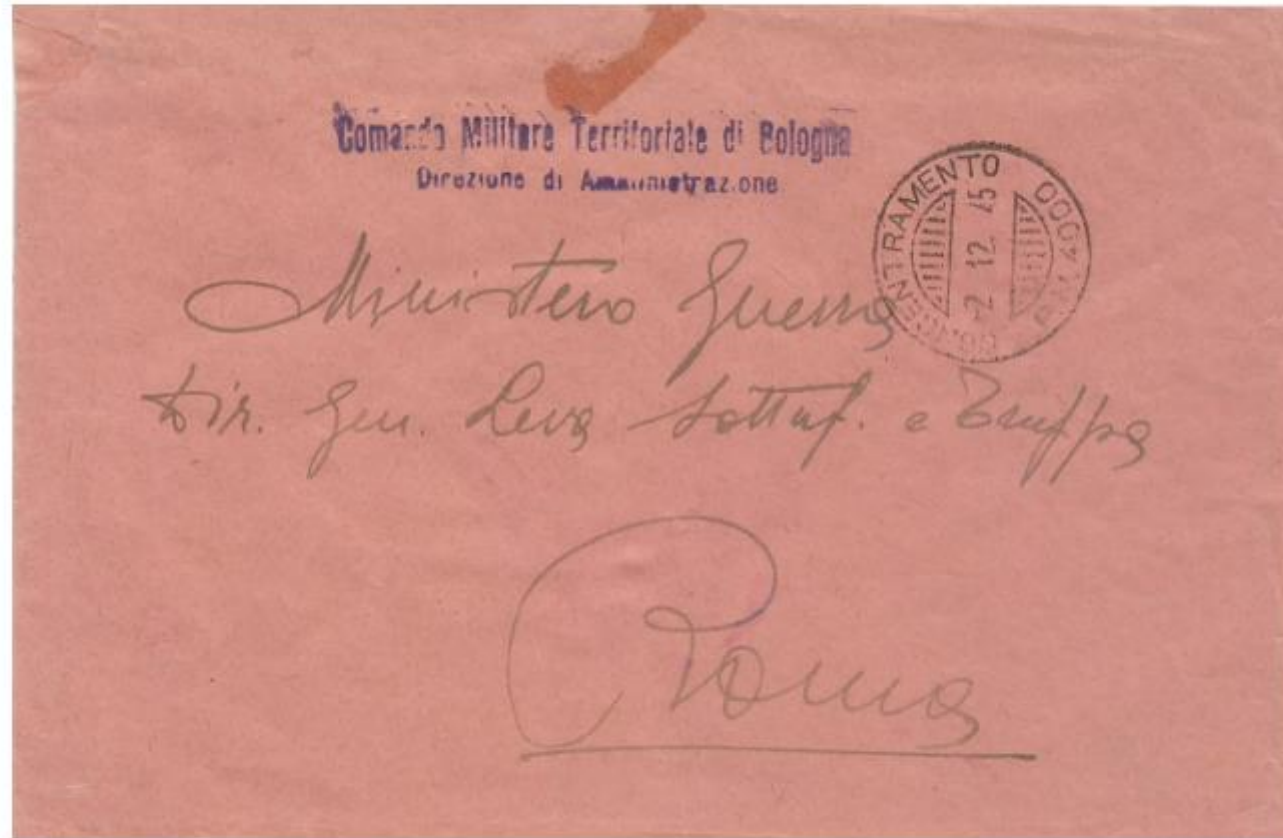 Comando Militare Territoriale di Bologna
Direzione di Amministrazione
CONCENTRAMENTO P.M. 4000
-2. 12. 45
Ministero Guerra
Dir. Gen. Leva Sottuf. e Truppa
Roma